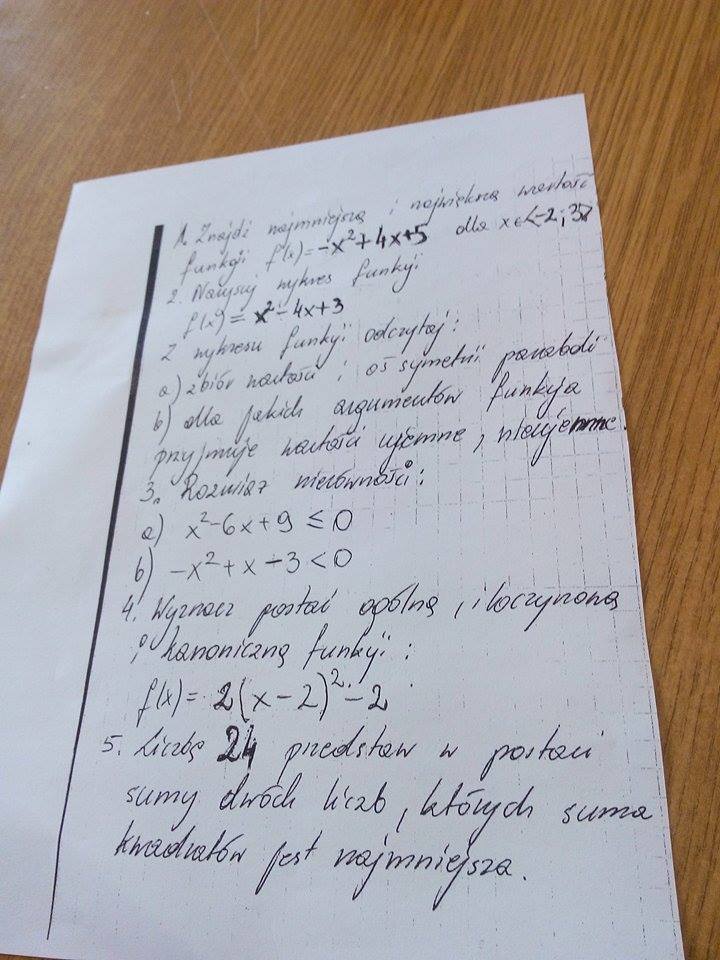 1. Znajdź najmniejszą i największą wartość
funkcji f(x)=-x²+4x+5 dla x∈<-2;3>
2. Narysuj wykres funkcji
f(x)=x²-4x+3
Z wykresu funkcji odczytaj:
a) zbiór wartości i oś symetrii paraboli
b) dla jakich argumentów funkcja
przyjmuje wartości ujemne, nieujemne.
3. Rozwiąż nierówności:
a) x²-6x+9≤0
b) -x²+x-3<0
4. Wyznacz postać ogólną, iloczynową
i kanoniczną funkcji:
f(x)=2(x-2)²-2
5. Liczbę 24 przedstaw w postaci
sumy dwóch liczb, których suma
kwadratów jest najmniejsza.